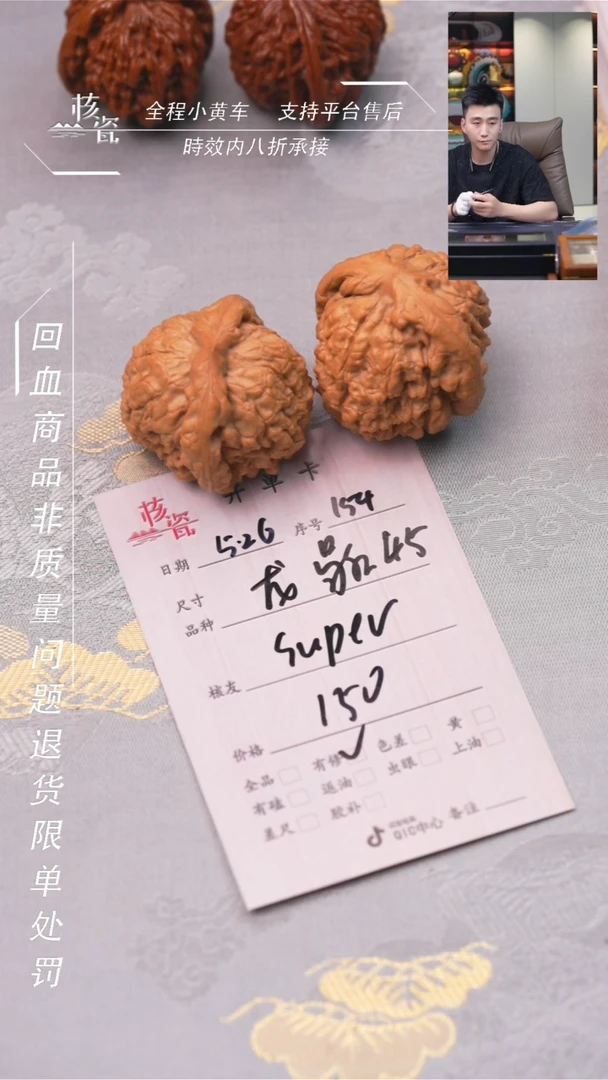 核瓷
全程小黄车 支持平台售后
時效内八折承接
回血商品非质量问题退货限单处罚
开单卡
核瓷
日期 5.26 序号 154
尺寸 45
品种
super
核友
150
价格
全品 有修 ✓ 色差 黄
有磕 返油 虫眼 上油
差尺 胶补
QIC中心 备注